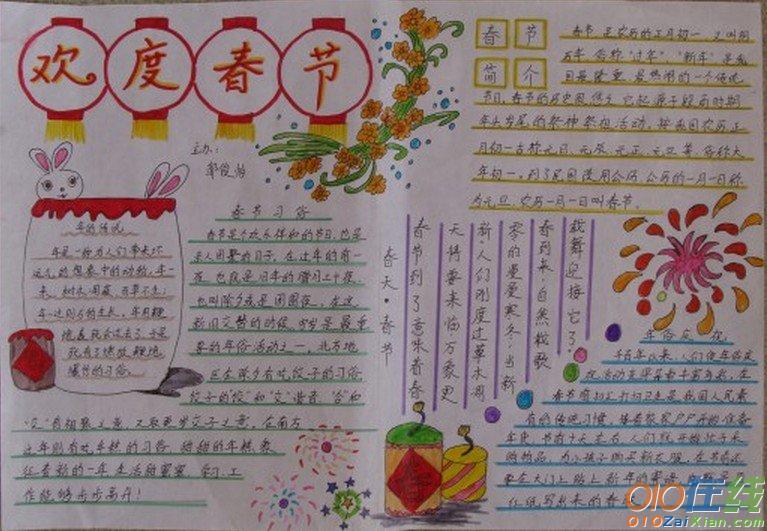 欢度春节
主办:
春节
简介
春节是农历的正月初一,又叫阴
历年,俗称“过年”“新年”是我
国最隆重、最热闹的一个传统
节日。春节的历史很悠久,它起源于殷商时期
年头岁尾的祭神祭祖活动。按我国农历正
月初一古称元日、元辰、元正、元旦等,俗称大
年初一,到了民国使用公历,公历的一月一日称
为元旦,农历一月一日叫春节。
年的传说
年是一种为人们带来坏
运气的想象中的动物,年一
来,树木凋蔽,百草不生;
年一过则万物生长,
习俗。
春节习俗
春节是个欢乐祥和的节日,也是
亲人团聚的日子,在过年的前一
夜,也就是旧年的腊月三十夜,
也叫除夕夜是团圆夜,在这
新旧交替的时候,守岁是最重
要的年俗活动之一,北方地
区在除夕有吃饺子的习俗,
饺子的“饺”和“交”谐音,“合”和
“交”有相聚之意,又取更岁交子之意,在南方
过年则有吃年糕的习俗,甜甜的年糕象
征着新的一年生活甜蜜蜜,学习、工
作能够步步高升!
春天·春节
春节到了意味着春
天将要来临万象更
新,人们刚度过草木凋
零的漫漫寒冬,当新
春到来,自然载歌
载舞迎接它了。
年俗庆祝
千百年以来,人们使年俗庆
祝活动变得丰富多彩,在
春节前扫尘打扫卫生是我国人民素
有的传统习惯,接着家家户户开始准备
年货,节前十天左右,人们就开始忙于采
购物品,为小孩子购买新衣服,在节前还
要在大门上贴上新年的寄语,
红纸写出来的春
010在线
010ZaiXian.com